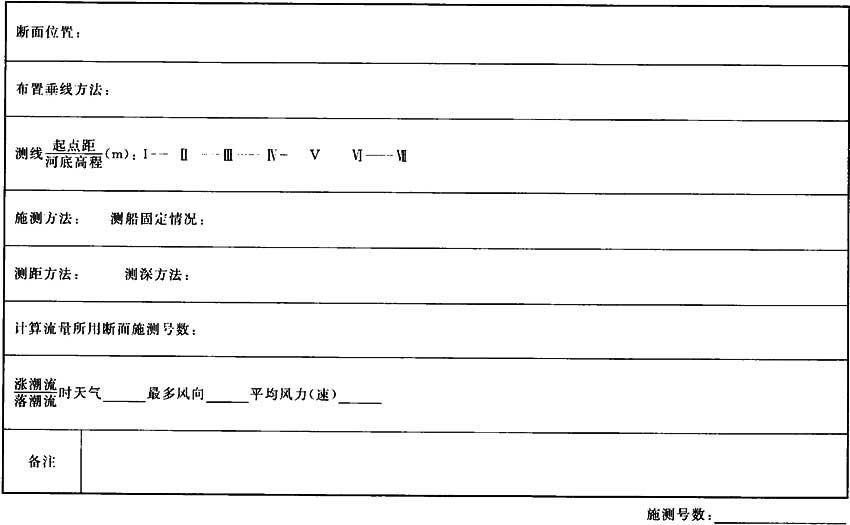 断面位置：
布置垂线方法：
测线起点距/河底高程(m)：Ⅰ-- Ⅱ ----Ⅲ---- Ⅳ- Ⅴ Ⅵ——-Ⅶ
施测方法： 测船固定情况：
测距方法： 测深方法：
计算流量所用断面施测号数：
涨潮流/落潮流时天气_____最多风向_____平均风力(速)_____
备注
施测号数：_______________